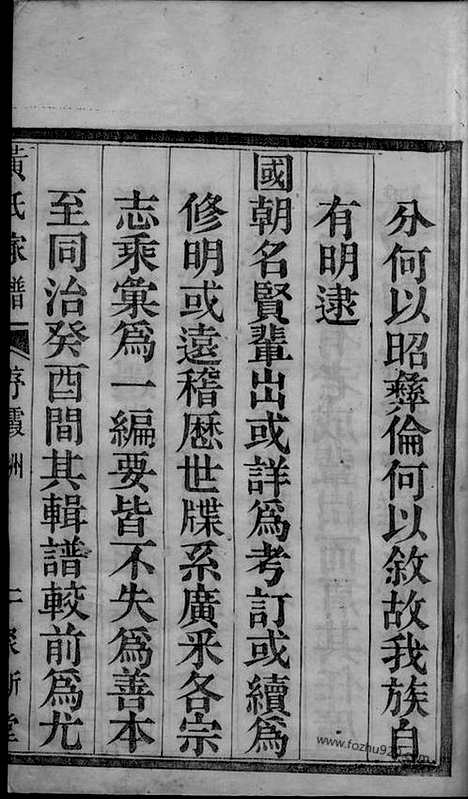 分何以昭彝倫何以敘故我族自
有明逮
國朝名賢輩出或詳爲考訂或續爲
修明或遠稽歷世牒系廣釆各宗
志乘彙爲一編要皆不失爲善本
至同治癸酉間其輯譜較前爲尤
黃氏家譜 序霞洲
www.fozhu920.com